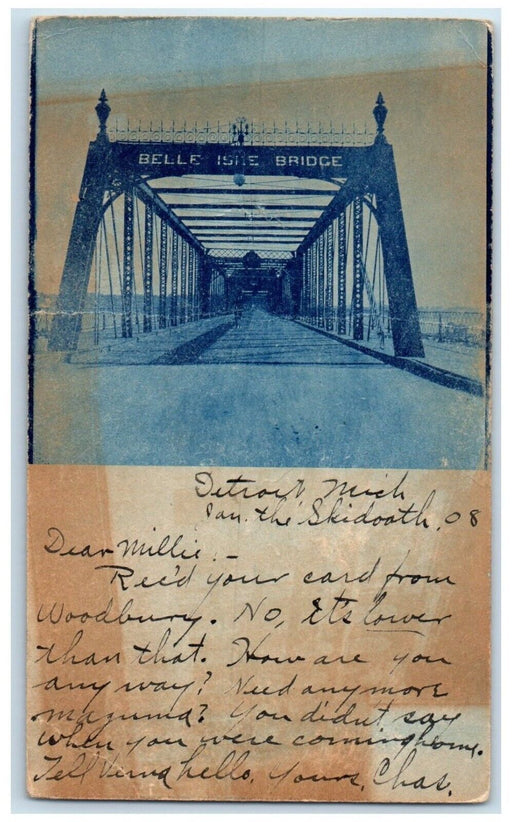 BELLE ISLE BRIDGE
Detroit, Mich
Jan. the Skidooth, 08
Dear Millie,—
Rec'd your card from
Woodbury. No, it's lower
than that. How are you
any way? Need anymore
mazuma? You didn't say
when you were coming home.
Tell Verna hello. Yours, Chas.